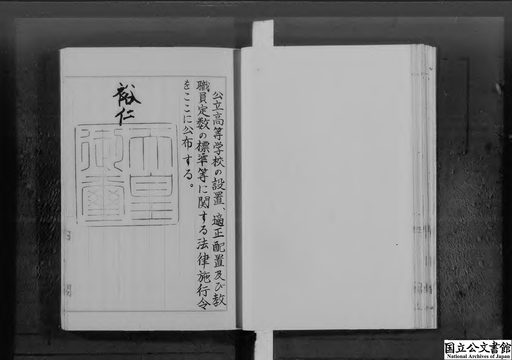 公立高等学校の設置、適正配置及び教
職員定数の標準等に関する法律施行令
をここに公布する。
裕仁
天皇
御璽
国立公文書館
National Archives of Japan